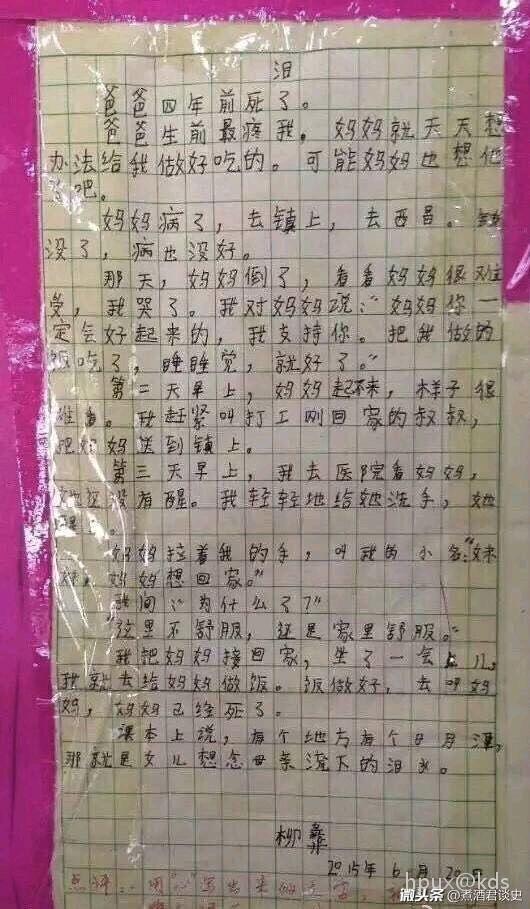 泪
爸爸四年前死了。
爸爸生前最疼我。妈妈就天天想
办法给我做好吃的。可能妈妈也想他
了吧。
妈妈病了，去镇上，去西昌。钱
没了，病也没好。
那天，妈妈倒了，看看妈妈很难
受，我哭了。我对妈妈说："妈妈你一
定会好起来的，我支持你。把我做的
饭吃了，睡睡觉，就好了。"
第二天早上，妈妈起不来，样子很
难看。我赶紧叫打工刚回家的叔叔，
把妈妈送到镇上。
第三天早上，我去医院看妈妈，
她还没有醒。我轻轻地给她洗手，她
醒了。
妈妈拉着我的手，叫我的小名："妹
妹，妈妈想回家。"
我问："为什么了？"
"这里不舒服，还是家里舒服。"
我把妈妈接回家，坐了一会儿，
我就去给妈妈做饭。饭做好，去叫妈
妈，妈妈已经死了。
课本上说，有个地方有个日月潭，
那就是女儿想念母亲流下的泪水。
柳彝
2015年6月20日
点评：用
hpux@kds
微头条@煮酒君谈史